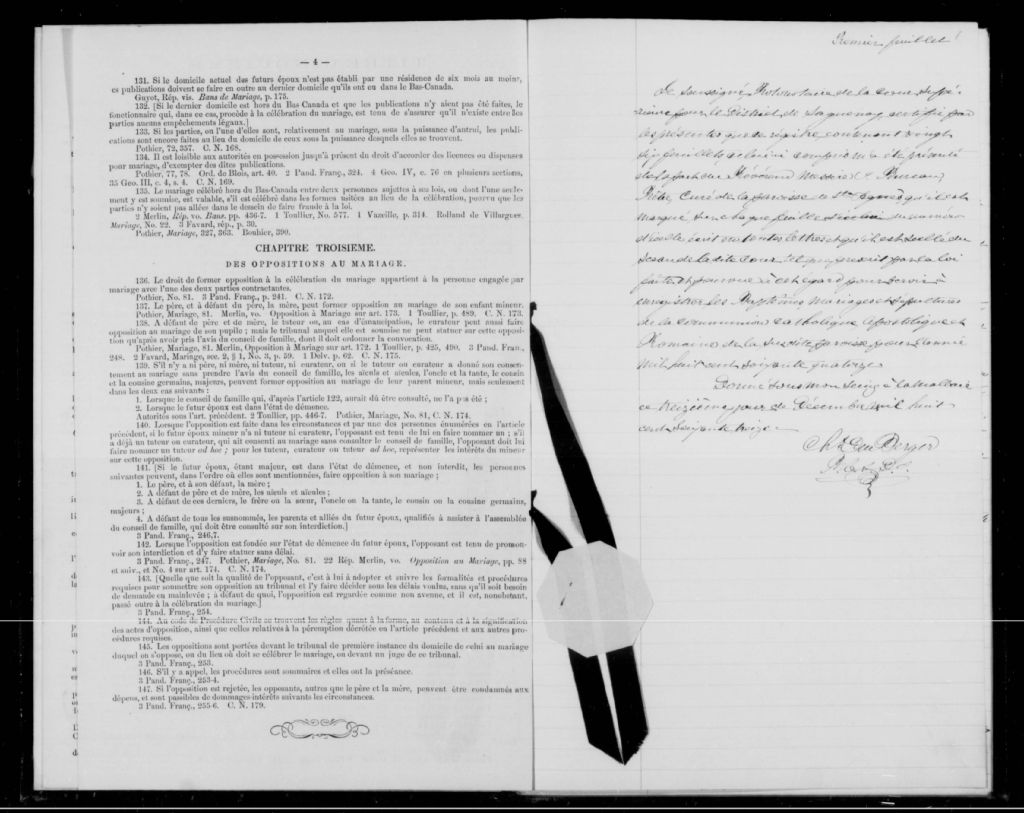 — 4 —
131. Si le domicile actuel des futurs époux n'est pas établi par une résidence de six mois au moins,
ces publications doivent se faire en outre au dernier domicile qu'ils ont eu dans le Bas-Canada.
Guyot, Rép. vis. Bans de Mariage, p. 175.
132. [Si le dernier domicile est hors du Bas Canada et que les publications n'y aient pas été faites, le
fonctionnaire qui, dans ce cas, procède à la célébration du mariage, est tenu de s'assurer qu'il n'existe entre les
parties aucuns empêchements légaux.]
133. Si les parties, ou l'une d'elles sont, relativement au mariage, sous la puissance d'autrui, les publi-
cations sont encore faites au lieu du domicile de ceux sous la puissance desquels elles se trouvent.
Pothier, 72, 357. C. N. 168.
134. Il est loisible aux autorités en possession jusqu'à présent du droit d'accorder des licences ou dispenses
pour mariage, d'exempter des dites publications.
Pothier, 77, 78. Ord. de Blois, art. 40. 2 Pand. Franç., 324. 4 Geo. IV, c. 76 en plusieurs sections,
35 Geo. III, c. 4, s. 4. C. N. 169.
135. Le mariage célébré hors du Bas-Canada entre deux personnes sujettes à ses lois, ou dont l'une seule-
ment y est soumise, est valable, s'il est célébré dans les formes usitées au lieu de la célébration, pourvu que les
parties n'y soient pas allées dans le dessein de faire fraude à la loi.
2 Merlin, Rép. vo. Bans. pp. 436-7. 1 Toullier, No. 577. 1 Vazeille, p. 314. Rolland de Villargues,
Mariage, No. 22. 3 Favard, rép., p. 30.
Pothier, Mariage, 327, 363. Bouhier, 390.
CHAPITRE TROISIEME.
DES OPPOSITIONS AU MARIAGE.
136. Le droit de former opposition à la célébration du mariage appartient à la personne engagée par
mariage avec l'une des deux parties contractantes.
Pothier, No. 81. 3 Pand. Franç., p. 241. C. N. 172.
137. Le père, et à défaut du père, la mère, peut former opposition au mariage de son enfant mineur.
Pothier, Mariage, 81. Merlin, vo. Opposition à Mariage sur art. 173. 1 Toullier, p. 489. C. N. 173.
138. A défaut de père et de mère, le tuteur ou, au cas d'émancipation, le curateur peut aussi faire
opposition au mariage de son pupille; mais le tribunal auquel elle est soumise ne peut statuer sur cette opposi-
tion qu'après avoir pris l'avis du conseil de famille, dont il doit ordonner la convocation.
Pothier, Mariage, 81. Merlin, Opposition à Mariage sur art. 172. 1 Toullier, p. 425, 490. 3 Pand. Fran.,
248. 2 Favard, Mariage, sec. 2, § 1, No. 3, p. 59. 1 Delv. p. 62. C. N. 175.
139. S'il n'y a ni père, ni mère, ni tuteur, ni curateur, ou si le tuteur ou curateur a donné son consen-
tement au mariage sans prendre l'avis du conseil de famille, les aïeuls et aïeules, l'oncle et la tante, le cousin
et la cousine germains, majeurs, peuvent former opposition au mariage de leur parent mineur, mais seulement
dans les deux cas suivants :
1. Lorsque le conseil de famille qui, d'après l'article 122, aurait dû être consulté, ne l'a pas été ;
2. Lorsque le futur époux est dans l'état de démence.
Autorités sous l'art. précédent. 2 Toullier, pp. 446-7. Pothier, Mariage, No. 81, C. N. 174.
140. Lorsque l'opposition est faite dans les circonstances et par une des personnes énumérées en l'article
précédent, si le futur époux mineur n'a ni tuteur ni curateur, l'opposant est tenu de lui en faire nommer un ; s'il
a déjà un tuteur ou curateur, qui ait consenti au mariage sans consulter le conseil de famille, l'opposant doit lui
faire nommer un tuteur ad hoc ; pour les tuteur, curateur ou tuteur ad hoc, représenter les intérêts du mineur
sur cette opposition.
141. [Si le futur époux, étant majeur, est dans l'état de démence, et non interdit, les personnes
suivantes peuvent, dans l'ordre où elles sont mentionnées, faire opposition à son mariage ;
1. Le père, et à son défaut, la mère ;
2. A défaut de père et de mère, les aïeuls et aïeules ;
3. A défaut de ces derniers, le frère ou la sœur, l'oncle ou la tante, le cousin ou la cousine germains,
majeurs ;
4. A défaut de tous les susnommés, les parents et alliés du futur époux, qualifiés à assister à l'assemblée
du conseil de famille, qui doit être consulté sur son interdiction.]
3 Pand. Franç., 246,7.
142. Lorsque l'opposition est fondée sur l'état de démence du futur époux, l'opposant est tenu de promou-
voir son interdiction et d'y faire statuer sans délai.
3 Pand. Franç., 247. Pothier, Mariage, No. 81. 22 Rép. Merlin, vo. Opposition au Mariage, pp. 88
et suiv., et No. 4 sur art. 174. C. N. 174.
143. [Quelle que soit la qualité de l'opposant, c'est à lui à adopter et suivre les formalités et procédures
requises pour soumettre son opposition au tribunal et l'y faire décider sous les délais voulus, sans qu'il soit besoin
de demande en mainlevée ; à défaut de quoi, l'opposition est regardée comme non avenue, et il est, nonobstant,
passé outre à la célébration du mariage.]
3 Pand. Franç., 254.
144. Au code de Procédure Civile se trouvent les règles quant à la forme, au contenu et à la signification
des actes d'opposition, ainsi que celles relatives à la péremption décrétée en l'article précédent et aux autres pro-
cédures requises.
145. Les oppositions sont portées devant le tribunal de première instance du domicile de celui au mariage
duquel on s'oppose, ou du lieu où doit se célébrer le mariage, ou devant un juge de ce tribunal.
3 Pand. Franç., 253.
146. S'il y a appel, les procédures sont sommaires et elles ont la préséance.
3 Pand. Franç., 253-4.
147. Si l'opposition est rejetée, les opposants, autres que le père et la mère, peuvent être condamnés aux
dépens, et sont passibles de dommages-intérêts suivants les circonstances.
3 Pand. Franç., 255-6. C. N. 179.
Premier feuillet
Je soussigné Protonotaire de la Cour Supé-
rieure pour le District de Saguenay certifie par
les présentes que ce régistre contenant vingt
six feuillets celui ci compris m'a été présenté
par le Révérend Messire
Ptre, Curé de la paroisse de Ste Agnès qu'il est
marqué sur chaque feuille du numero
d'icelle écrit en toutes lettres et qu'il est scellé du
sceau de la dite Cour tel que prescrit par la loi
faite et pourvue à cet égard pour servir à
enregistrer les Baptêmes Mariages et Sépultures
de la Communion Catholique Apostolique et
Romaine de la susdite paroisse pour l'année
mil huit cent soixante quatorze
Donné sous mon seing à la Malbaie
ce treizième jour de Décembre mil huit
cent soixante treize
Chs Du Berger
P. C. S.